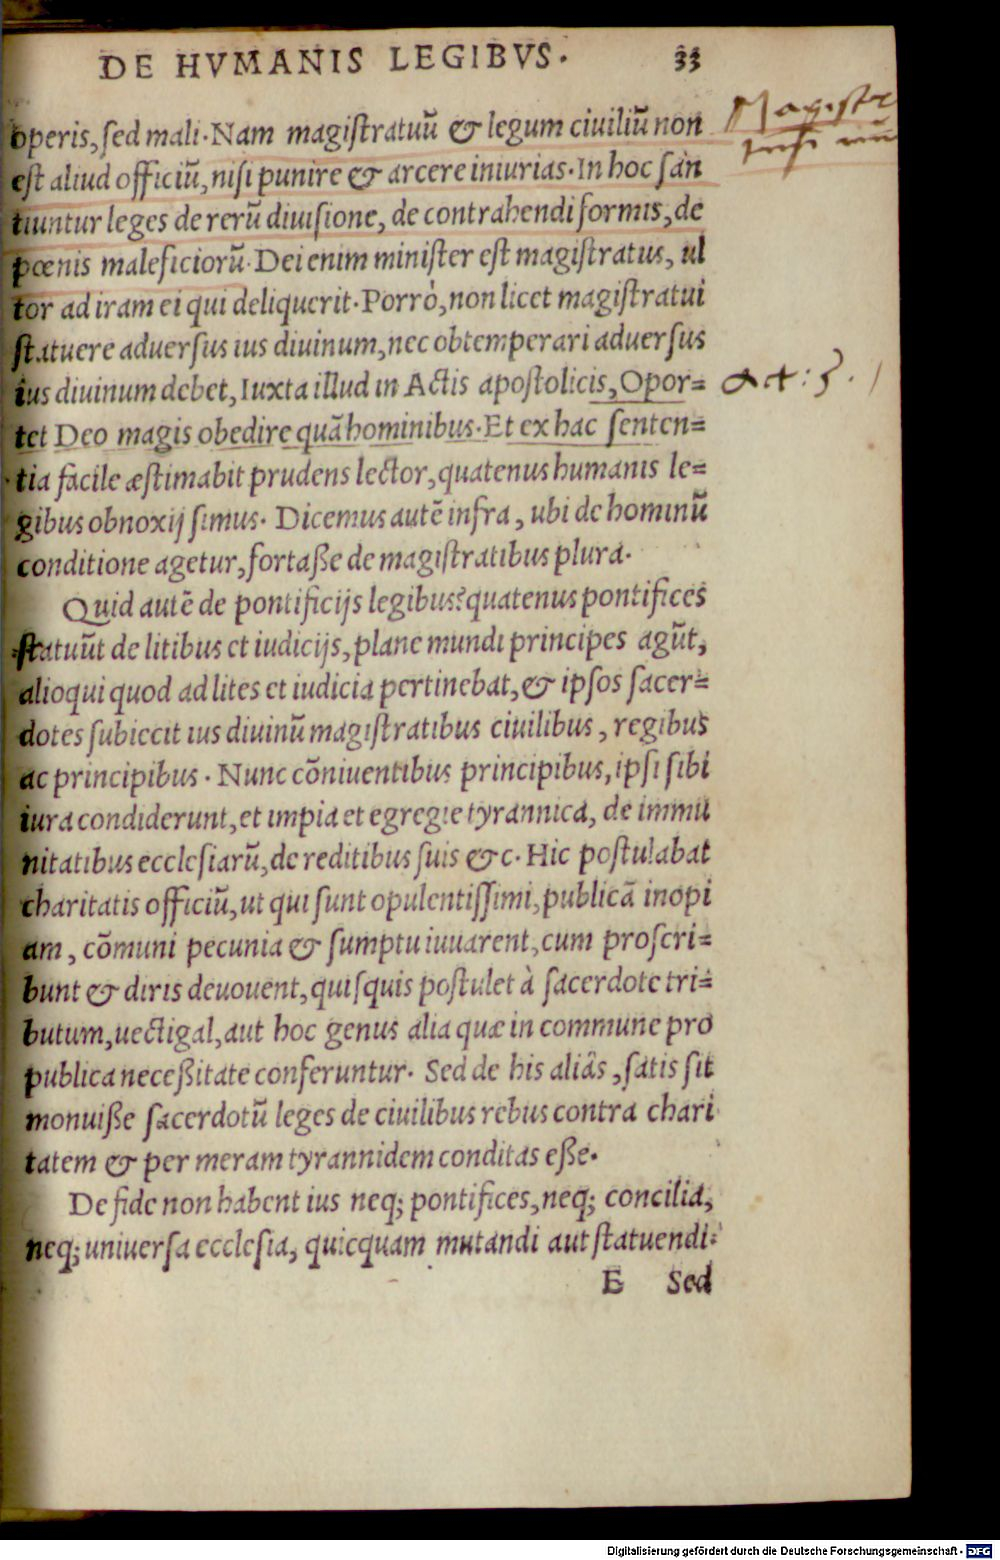 DE HVMANIS LEGIBVS. 33
operis, ſed mali. Nam magiſtratuũ & legum ciuiliũ non
eſt aliud officiũ, niſi punire & arcere iniurias. In hoc ſan
tiuntur leges de rerũ diuiſione, de contrahendi formis, de
pœnis maleficiorũ. Dei enim miniſter eſt magiſtratus, ul
tor ad iram ei qui deliquerit. Porrò, non licet magiſtratui
ſtatuere aduerſus ius diuinum, nec obtemperari aduerſus
ius diuinum debet, Iuxta illud in Actis apoſtolicis, Opor=
Act: 5.
tet Deo magis obedire quã hominibus. Et ex hac ſenten=
tia facile æſtimabit prudens lector, quatenus humanis le=
gibus obnoxij ſimus. Dicemus autẽ infra, ubi de hominũ
conditione agetur, fortaße de magiſtratibus plura.
Quid autẽ de pontificijs legibus? quatenus pontifices
ſtatuũt de litibus et iudicijs, plane mundi principes agũt,
alioqui quod ad lites et iudicia pertinebat, & ipſos ſacer=
dotes ſubiecit ius diuinũ magiſtratibus ciuilibus, regibus
ac principibus. Nunc cõniuentibus principibus, ipſi ſibi
iura condiderunt, et impia et egregie tyrannica, de immu
nitatibus eccleſiarũ, de reditibus ſuis &c. Hic poſtulabat
charitatis officiũ, ut qui ſunt opulentiſſimi, publicã inopi
am, cõmuni pecunia & ſumptu iuuarent, cum proſcri=
bunt & diris deuouent, quiſquis poſtulet à ſacerdote tri=
butum, uectigal, aut hoc genus alia quæ in commune pro
publica neceßitate conferuntur. Sed de his aliâs, ſatis ſit
monuiße ſacerdotũ leges de ciuilibus rebus contra chari
tatem & per meram tyrannidem conditas eße.
De fide non habent ius neq; pontifices, neq; concilia,
neq; uniuerſa eccleſia, quicquam mutandi aut ſtatuendi.
E Sed
Digitalisierung gefördert durch die Deutsche Forschungsgemeinschaft - DFG